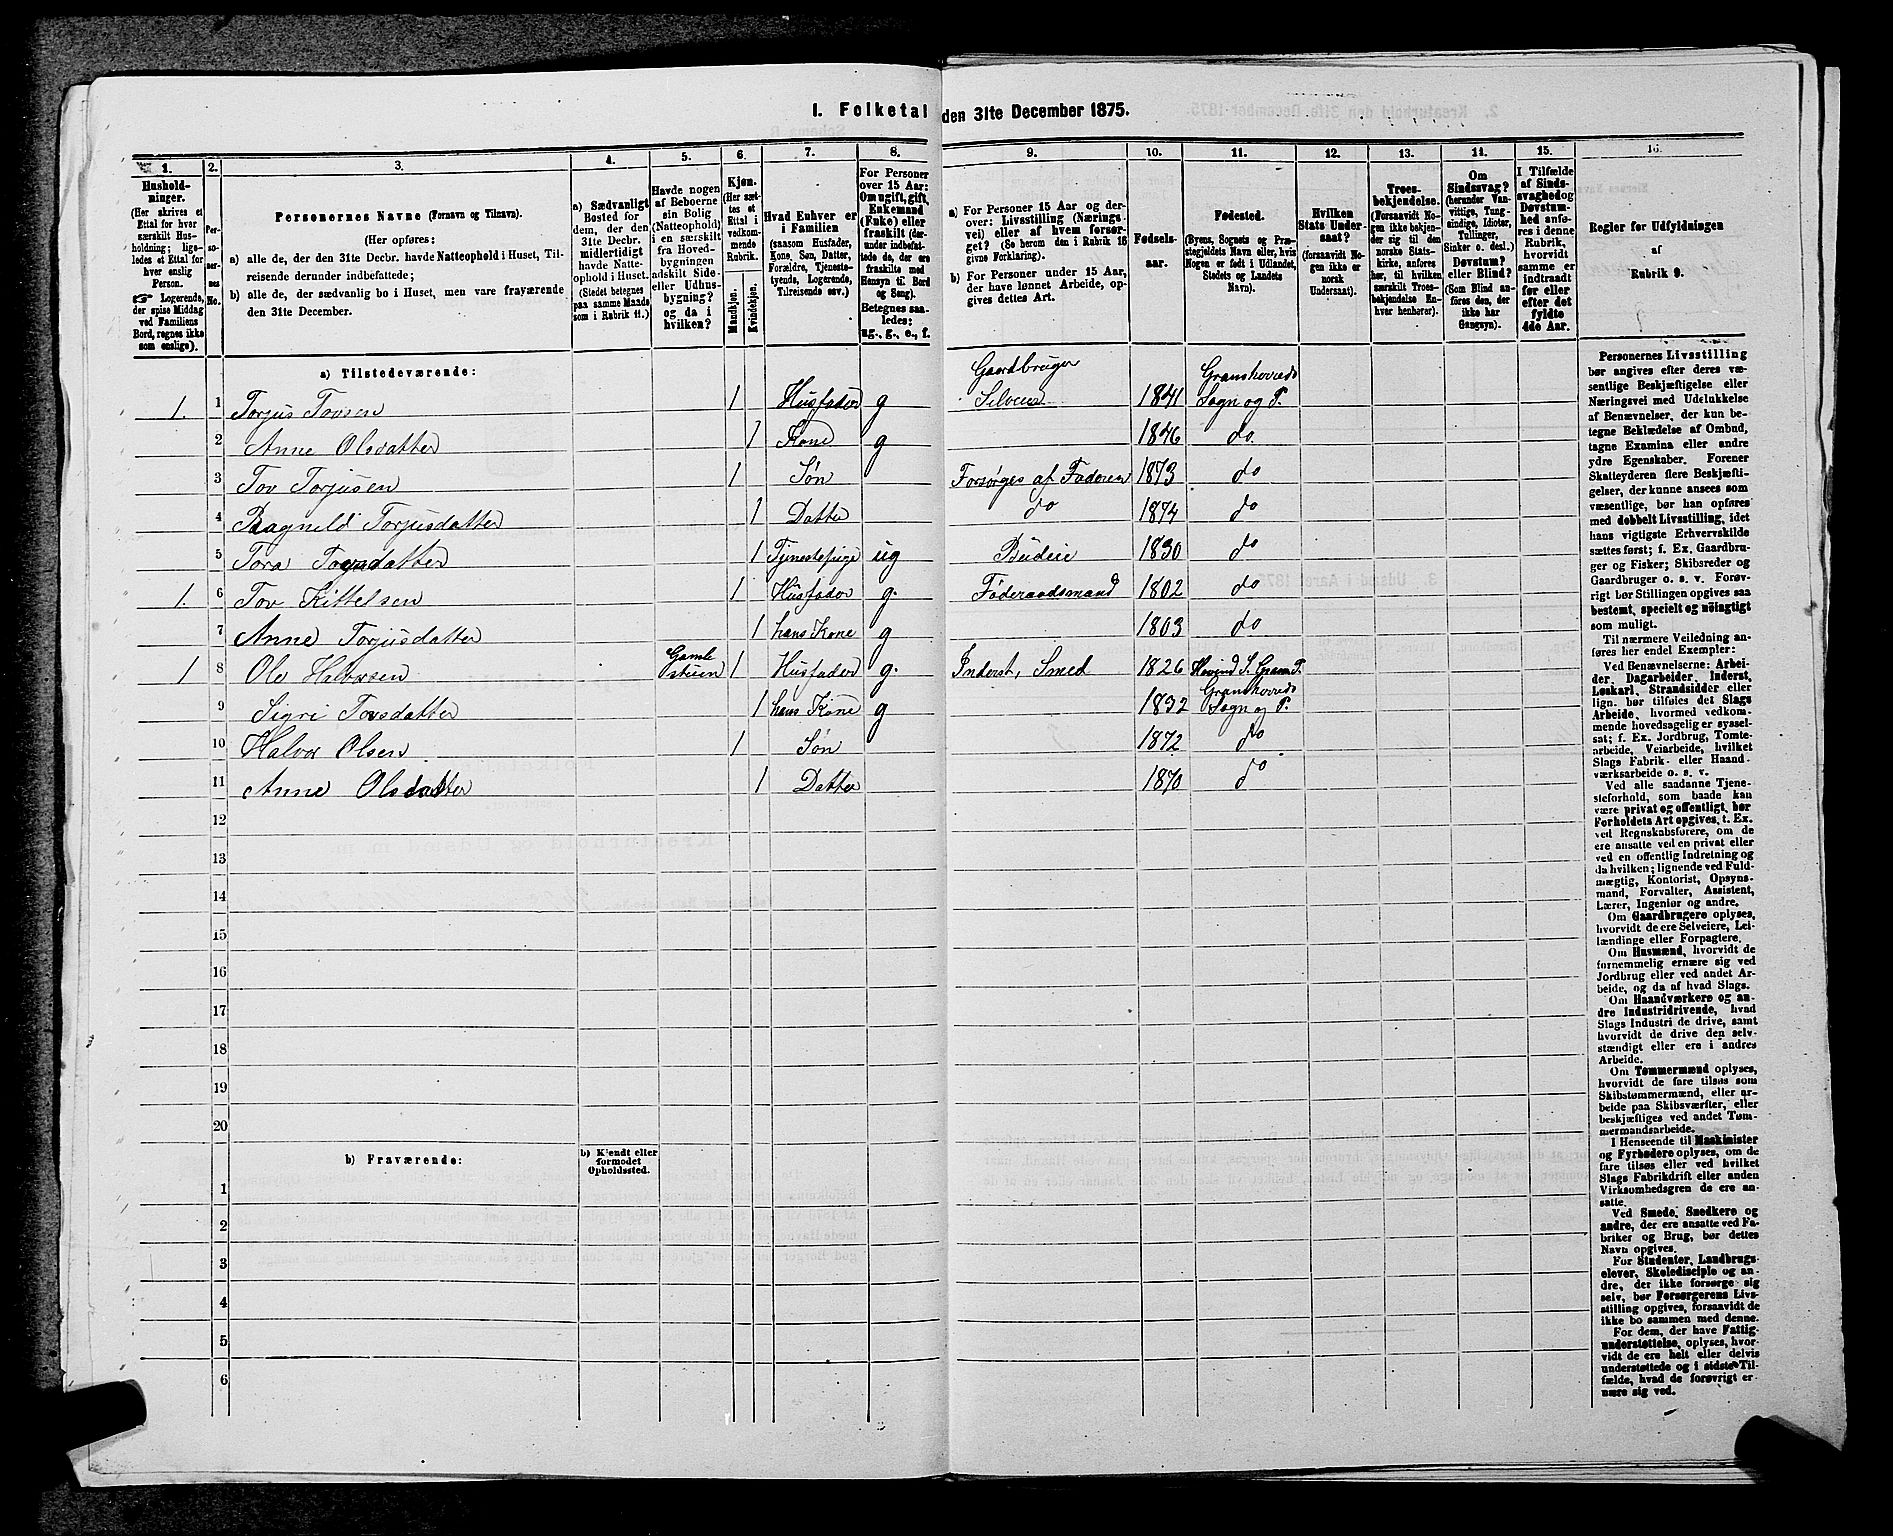 I. Folketal den 31te December 1875.
1. 2. 3. 4. 5. 6. 7. 8. 9. 10. 11. 12. 13. 14. 15. 16.
Husholdninger.
(Her skrives et
Ettal for hver
særskilt Husholdning;
ligeledes
et Ettal for
hver enslig
Person.
☞ Logerende,
der spise Middag
ved Familiens
Bord, regnes ikke
som enslige).
Personernes No.
Personernes Navne (Fornavn og Tilnavn).
(Her opføres:
a) alle de, der den 31te Decbr. havde Natteophold i Huset, Tilreisende
derunder indbefattede;
b) alle de, der sædvanlig bo i Huset, men vare fraværende
den 31te December.
a) Sædvanligt
Bosted for
dem, der den
31te Decbr.
midlertidigt
havde Natteophold
i Huset.
(Stedet betegnes
paa samme Maade
som i Rubrik 11.)
Havde nogen
af Beboerne
sin Bolig
(Natteophold)
i en særskilt
fra Hovedbygningen
adskilt Side-
eller Udhusbygning?
og da i
hvilken?
Kjøn.
(Her sættes
et
Ettal i
vedkommende
Rubrik.
Mandkjøn.
Kvindekjøn.
Hvad Enhver er
i Familien
(saasom Husfader,
Kone, Søn, Datter,
Forældre, Tjenestetyende,
Logerende,
Tilreisende osv.)
For Personer
over 15 Aar:
Om ugift, gift,
Enkemand
(Enke) eller
fraskilt (derunder
indbefattede
de, der ere
fraskilte med
Hensyn til Bord
og Seng).
Betegnes saaledes:
ug., g., e., f.
a) For Personer 15 Aar og derover:
Livsstilling (Næringsvei)
eller af hvem forsørget?
(Se herom den i Rubrik 16
givne Forklaring).
b) For Personer under 15 Aar,
der have lønnet Arbeide, opgives
dettes Art.
Fødselsaar.
Fødested.
(Byens, Sognets og Præstegjeldets
Navn eller, hvis
Nogen er født i Udlandet,
Stedets og Landets
Navn).
Hvilken
Stats Undersaat?
(forsaavidt Nogen
ikke er
norsk
Undersaat).
Troesbekjendelse.
(Forsaavidt Nogen
ikke bekjender
sig til den
norske Statskirke,
anføres
her, til hvilken
særskilt Troesbekjendelse
Enhver
henhører).
Om
Sindssvag?
(herunder Vanvittige,
Tungsindige,
Idioter,
Tullinger,
Sinker o. desl.)
Døvstum?
eller Blind?
(Som Blind anføres
den, der
ikke har
Gangsyn).
I Tilfælde
af Sindssvaghed
og
Døvstumhed
anføres
i denne
Rubrik,
hvorvidt
samme er
indtraadt
før eller
efter det
fyldte
4de Aar.
Regler for Udfyldningen
af
Rubrik 9.
a) Tilstedeværende:
1. 1 Torjus Tovsen 1 Husfader g Gaardbruger Selveier 1841 Granshoveds Sogn og P.
2 Anne Olsdatter 1 Kone g 1846 do.
3 Tov Torjusen 1 Søn Forsørges af Faderen 1873 do
4 Ragnild Torjusdatter 1 Datter do 1874 do
5 Tora Tovsdatter 1 Tjenestepige ug Budeie 1830 do
1. 6 Tov Kittelsen 1 Husfader g. Føderaadsmand 1802 do
7 Anne Torjusdatter 1 hans Kone g 1803 do
1 8 Ole Halvorsen Gamlestuen 1 Husfader g. Inderst, Smed 1826 Hovind S. Gran P.
9 Sigri Tovsdatter 1 hans Kone g 1832 Granshoveds Sogn og P.
10 Halvor Olsen 1 Søn 1872 do
11 Anne Olsdatter 1 Datter 1870 do
12
13
14
15
16
17
18
19
20
b) Fraværende: b) Kjendt eller
formodet
Opholdssted.
1
2
3
4
5
6
Personernes Livsstilling
bør angives efter deres væsentlige
Beskjæftigelse eller
Næringsvei med Udelukkelse
af Benævnelser, der kun betegne
Beklædelse af Ombud,
tagne Examina eller andre
ydre Egenskaber. Forener
Skatteyderen flere Beskjæftigelser,
der kunne ansees som
væsentlige, bør han opføres
med dobbelt Livsstilling, idet
hans vigtigste Erhvervskilde
sættes først; f. Ex. Gaardbruger
og Fisker; Skibsreder og
Gaardbruger o. s. v. Forøvrigt
bør Stillingen opgives saa
bestemt, specielt og nøiagtigt
som muligt.
Til nærmere Veiledning anføres
her endel Exempler:
Ved Benævnelserne: Arbeider,
Dagarbeider, Inderst,
Løskarl, Strandsidder eller
lign. bør tilføies det Slags
Arbeide, hvormed vedkommende
hovedsagelig er sysselsat;
f. Ex. Jordbrug, Tomtearbeide,
Veiarbeide, hvilket
Slags Fabrik- eller Haandværksarbeide
o. s. v.
Ved alle saadanne Tjenesteforhold,
som baade kan
være privat og offentligt, bør
Forholdets Art opgives, t. Ex.
ved Regnskabsførere, om de
ere ansatte ved en privat eller
ved en offentlig Indretning og
da hvilken; lignende ved Fuldmægtig,
Kontorist, Opsynsmand,
Forvalter, Assistent,
Lærer, Ingeniør og andre.
Om Gaardbrugere oplyses,
hvorvidt de ere Selveiere, Leilændinge
eller Forpagtere.
Om Husmænd, hvorvidt de
fornemmelig ernære sig ved
Jordbrug eller ved andet Arbeide,
og da af hvad Slags.
Om Haandværkere og andre
Industridrivende, hvad
Slags Industri de drive, samt
hvorvidt de drive den selvstændigt
eller ere i andres
Arbeide.
Om Tømmermænd oplyses,
hvorvidt de fare tilsøs som
Skibstømmermænd, eller arbeide
paa Skibsværfter, eller
beskjæftiges ved andet Tømmermandsarbeide.
I Henseende til Maskinister
og Fyrbødere oplyses, om de
fare tilsøs eller ved hvilket
Slags Fabrikdrift eller anden
Virksomhedsgren de ere ansatte.
Ved Smede, Snedkere og
andre, der ere ansatte ved Fabriker
og Brug, bør dettes
Navn opgives.
For Studenter, Landbrugselever,
Skoledisciple og andre,
der ikke forsørge sig
selv, bør Forsørgerens Livsstilling
opgives, forsaavidt de
ikke bo sammen med denne.
For dem, der have Fattigunderstøttelse,
oplyses, hvorvidt
de ere helt eller delvis
understøttede og i sidste Tilfælde,
hvad de forøvrigt ernære
sig ved.